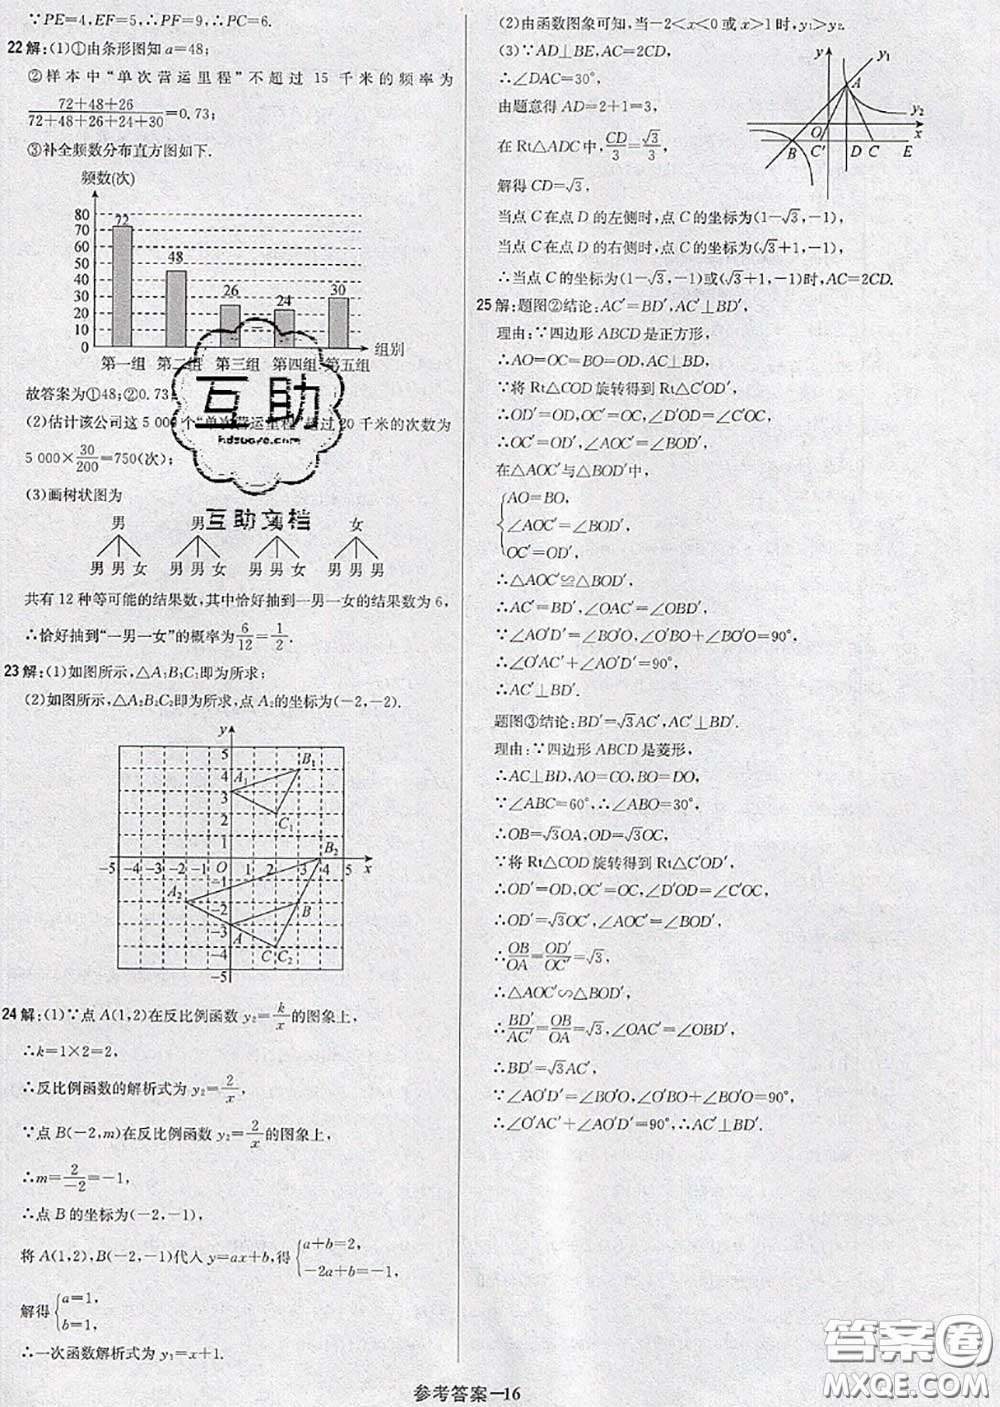 ∵PE=4,EF=5,∴PF=9,∴PC=6.
22解:(1)①由条形图知a=48;
②样本中"单次营运里程"不超过15千米的频率为
72+48+26
72+48+26+24+30
=0.73;
③补全频数分布直方图如下.
频数(次)
80
70
60
50
40
30
20
10
0
72
48
26
24
30
第一组 第二组 第三组 第四组 第五组 组别
故答案为①48;②0.73;
(2)估计该公司这5 000个"单次营运里程"超过20千米的次数为
5 000×30/200=750(次);
(3)画树状图为
男 男 男 女
男 男 女 男 男 女 男 男 女 男 男 男
共有12种等可能的结果数,其中恰好抽到一男一女的结果数为6,
∴恰好抽到"一男一女"的概率为6/12=1/2.
23解:(1)如图所示,△A₁B₁C₁即为所求;
(2)如图所示,△A₂B₂C₂即为所求,点A₂的坐标为(-2,-2).
y
5
4
3
2
1
A₁
B₁
C₁
B₂
-5 -4 -3 -2 -1 O 1 2 3 4 5 x
-1
-2
-3
-4
-5
A₂
B
A
C
C₂
24解:(1)∵点A(1,2)在反比例函数y₂=k/x的图象上,
∴k=1×2=2,
∴反比例函数的解析式为y₂=2/x,
∵点B(-2,m)在反比例函数y₂=2/x的图象上,
∴m=2/-2=-1,
∴点B的坐标为(-2,-1),
将A(1,2),B(-2,-1)代入y=ax+b,得{a+b=2,
-2a+b=-1,
解得{a=1,
b=1,
∴一次函数解析式为y₁=x+1.
(2)由函数图象可知,当-2<x<0或x>1时,y₁>y₂.
(3)∵AD⊥BE,AC=2CD,
∴∠DAC=30°,
由题意得AD=2+1=3,
在Rt△ADC中,CD/3=√3/3,
解得CD=√3,
当点C在点D的左侧时,点C的坐标为(1-√3,-1),
当点C在点D的右侧时,点C的坐标为(√3+1,-1),
∴当点C的坐标为(1-√3,-1)或(√3+1,-1)时,AC=2CD.
y
y₁
A
y₂
O
x
B C′ D C E
25解:题图②结论:AC′=BD′,AC′⊥BD′,
理由:∵四边形ABCD是正方形,
∴AO=OC=BO=OD,AC⊥BD,
∵将Rt△COD旋转得到Rt△C′OD′,
∴OD′=OD,OC′=OC,∠DOD′=∠C′OC,
∴OC′=OD′,∠AOC′=∠BOD′,
在△AOC′与△BOD′中,
AO=BO,
∠AOC′=∠BOD′,
OC′=OD′,
∴△AOC′≌△BOD′,
∴AC′=BD′,∠OAC′=∠OBD′,
∵∠AO′D′=∠BO′O,∠O′BO+∠BO′O=90°,
∴∠O′AC′+∠AO′D′=90°,
∴AC′⊥BD′.
题图③结论:BD′=√3AC′,AC′⊥BD′.
理由:∵四边形ABCD是菱形,
∴AC⊥BD,AO=CO,BO=DO,
∵∠ABC=60°,∴∠ABO=30°,
∴OB=√3OA,OD=√3OC,
∵将Rt△COD旋转得到Rt△C′OD′,
∴OD′=OD,OC′=OC,∠DOD′=∠C′OC,
∴OD′=√3OC′,∠AOC′=∠BOD′,
∴OB/OA=OD′/OC′=√3,
∴△AOC′∽△BOD′,
∴BD′/AC′=OB/OA=√3,∠OAC′=∠OBD′,
∴BD′=√3AC′,
∵∠AO′D′=∠BO′O,∠O′BO+∠BO′O=90°,
∴∠O′AC′+∠AO′D′=90°,∴AC′⊥BD′.
互助
hdzuoye.com
互助文档
答案圈
MXQE.COM
参考答案-16